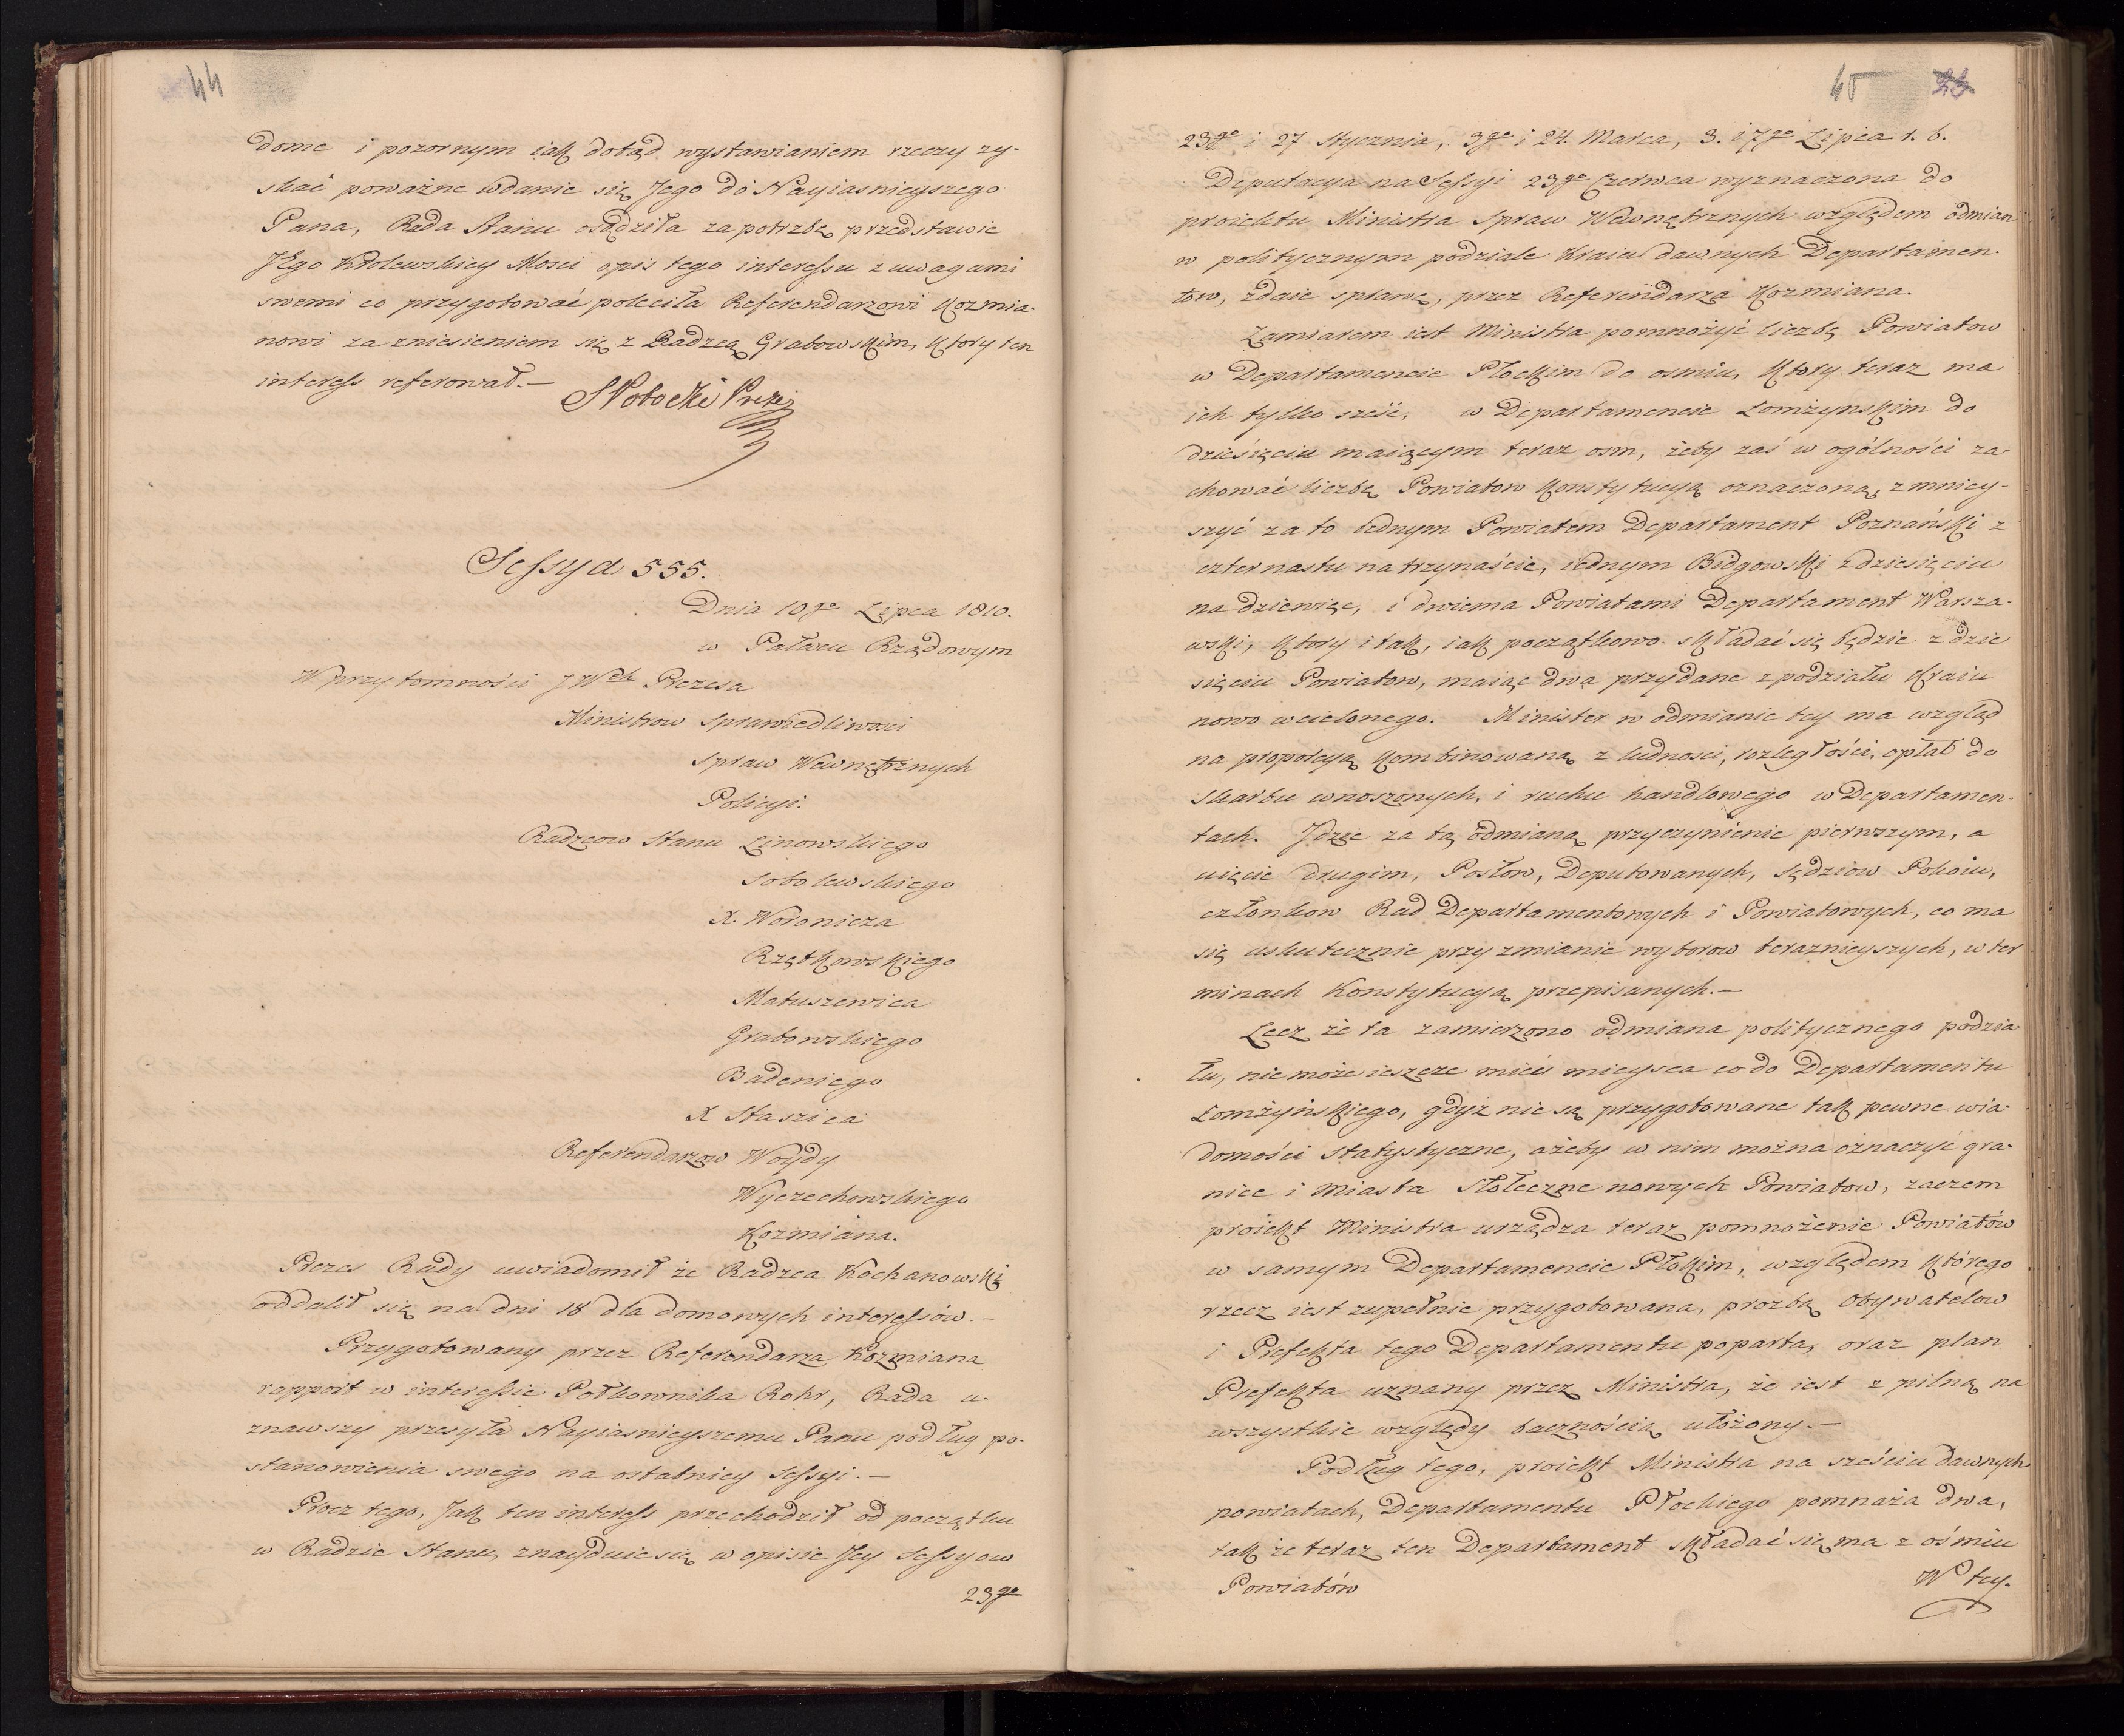 44
dome i pozornym iak dotąd wystawianiem rzeczy zy-
skać poważne wdanie się Jego do Nayiasnieyszego
Pana, Rada Stanu osądziła za potrzbę przedstawic
JKgo Królewskiey Mosci opis tego interessu z uwagami
swemi co przygotować poleciła Referendarzowi Kozmia-
nowi za zniesieniem się z Radzcą Grabowskim, ktory ten
interess referował.—
SPotocki Prezes
Sessya 555.
Dnia 10go Lipca 1810.
w Pałacu Rządowym
W przytomności JWch Prezesa
Ministrow Sprawiedliwosci
Spraw Wewnętrznych
Policyi.
Radzcow Stanu Linowskiego
Sobolewskiego
X. Woronicza
Rzętkowskiego
Matuszewica
Grabowskiego
Badeniego
X Staszica
Referendarzow Woydy
Wyczechowskiego
Kozmiana.
Prezes Rady uwiadomił że Radzca Kochanowski
oddalił się na dni 18 dla domowych interessów.—
Przygotowany przez Referendarza Kozmiana
rapport w interessie Połkownika Rohr, Rada u-
znawszy przesyła Nayiasnieyszemu Panu podług po-
stanowienia swego na ostatniey Sessyi.—
Procz tego, Jak ten interess przechodził od początku
w Radzie Stanu, znayduie się w opisie Jey Sessyow
23go
45 23
23go i 27 Stycznia, 3go i 24. Marca, 3. i 7go Lipca r. b.
Deputacya na Sessyi 23go Czerwca wyznaczona do
proiektu Ministra Spraw Wewnętrznych względem odmian
w politycznym podziale Kraiu dawnych Departamen-
tow, zdaie sprawę, przez Referendarza Kozmiana.
Zamiarem iest Ministra pomnożyć liczbę Powiatow
w Departamencie Płockim do osmiu, ktory teraz ma
ich tylko sześć, w Departamencie Łomżynskim do
dziesięciu maiącym teraz osm, żeby zaś w ogólności za-
chować liczbę Powiatow Konstytucyą oznaczoną, zmniey-
szyć za to iednym Powiatem Departament Poznański z
czternastu na trzynaście, iednym Bidgowski z dziesięciu
na dziewięc, i dwiema Powiatami Departament Warsza-
wski, ktory i tak, iak początkowo składać się będzie z dzie
sięciu Powiatow, maiąc dwa przydane z podziału Kraiu
nowo wcielonego. Minister w odmianie tey ma wzgląd
na proporcyą kombinowaną z ludnosci, rozległości, opłat do
skarbu wnoszonych, i ruchu handlowego w Departamen-
tach. Jdzie za tą odmianą przyczynienie pierwszym, a
uięcie drugim, Posłow, Deputowanych, Sędziow Pokoiu,
członkow Rad Departamentowych i Powiatowych, co ma
się uskutecznie przy zmianie wyborow teraznieyszych, w ter
minach Konstytucyą przepisanych.—
Lecz że ta zamierzono odmiana politycznego podzia-
łu, nie może ieszcze mieć mieysca co do Departamentu
Łomżyńskiego, gdyż nie są przygotowane tak pewne wia-
domości statystyczne, ażeby w nim można oznaczyć gra-
nice i miasta stołeczne nowych Powiatow, zaczem
proiekt Ministra urządza teraz pomnożenie Powiatów
w samym Departamencie Płokim, względem którego
rzecz iest zupełnie przygotowana, prozbą Obywatelow
i Prefekta tego Departamentu poparta, oraz plan
Prefekta uznany przez Ministra, że iest z pilną na
wszystkie względy bacznością ułożony.—
Podług tego, proiekt Ministra na sześciu dawnych
powiatach, Departamentu Płockiego pomnaża dwa,
tak że teraz ten Departament składać się ma z ośmiu
Powiatów
W tey.